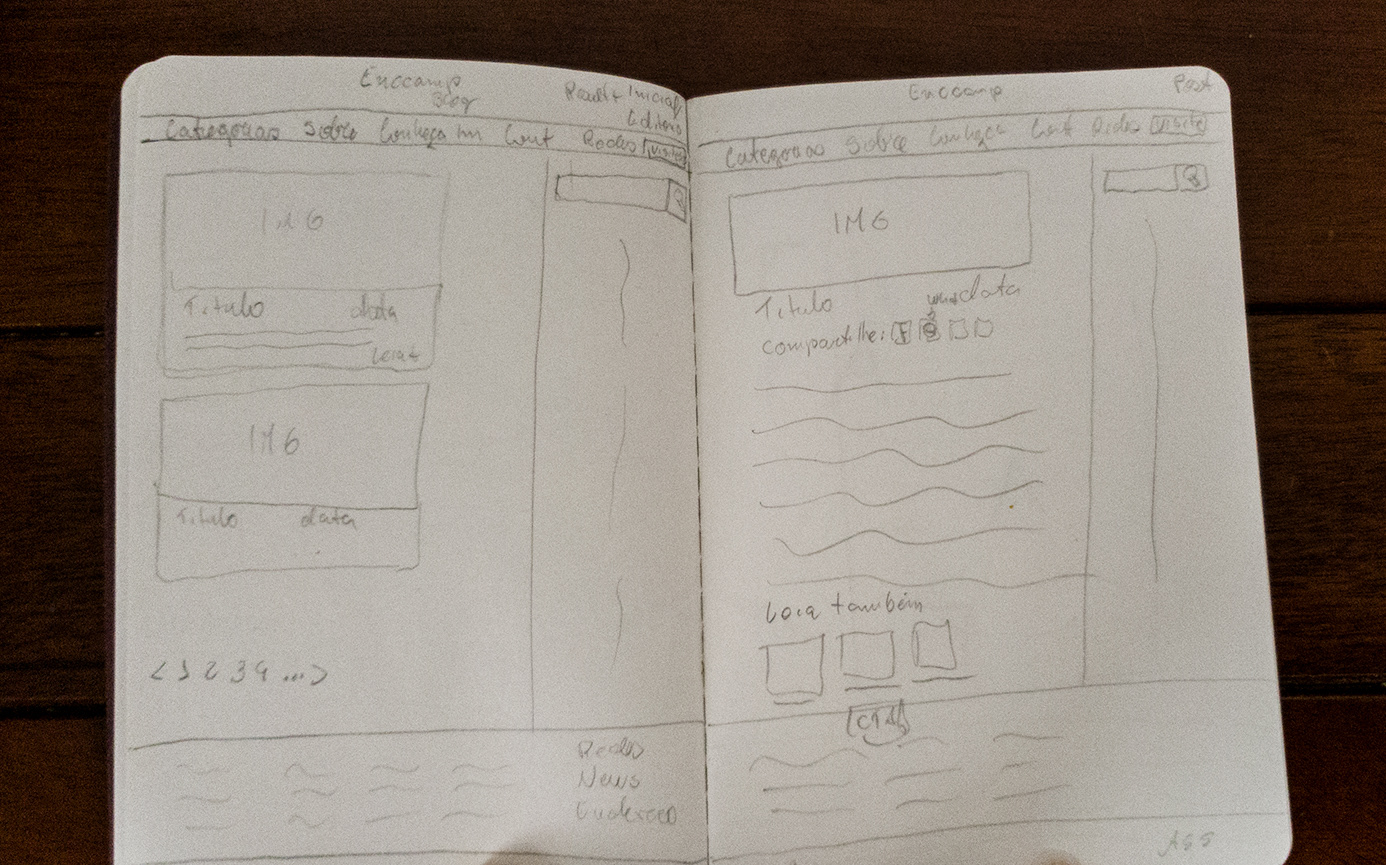 Enccamp
Blog
Inicial
Categorias Sobre Conheça Cont Redes
IMG
Titulo data
IMG
Titulo data
< 1 2 3 4 ... >
Redes
News
Endereço
Enccamp
Post
Categorias Sobre Conheça Cont Redes Visite
IMG
Titulo data
Compartilhe:
Leia também
CTA
ASS